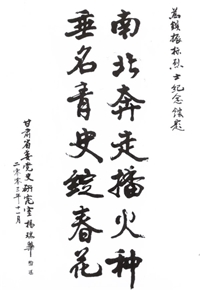 为钱振标烈士纪念馆题
南北奔走播火种
垂名青史绽春花
甘肃省委党史研究室杨华
二零零三年十一月